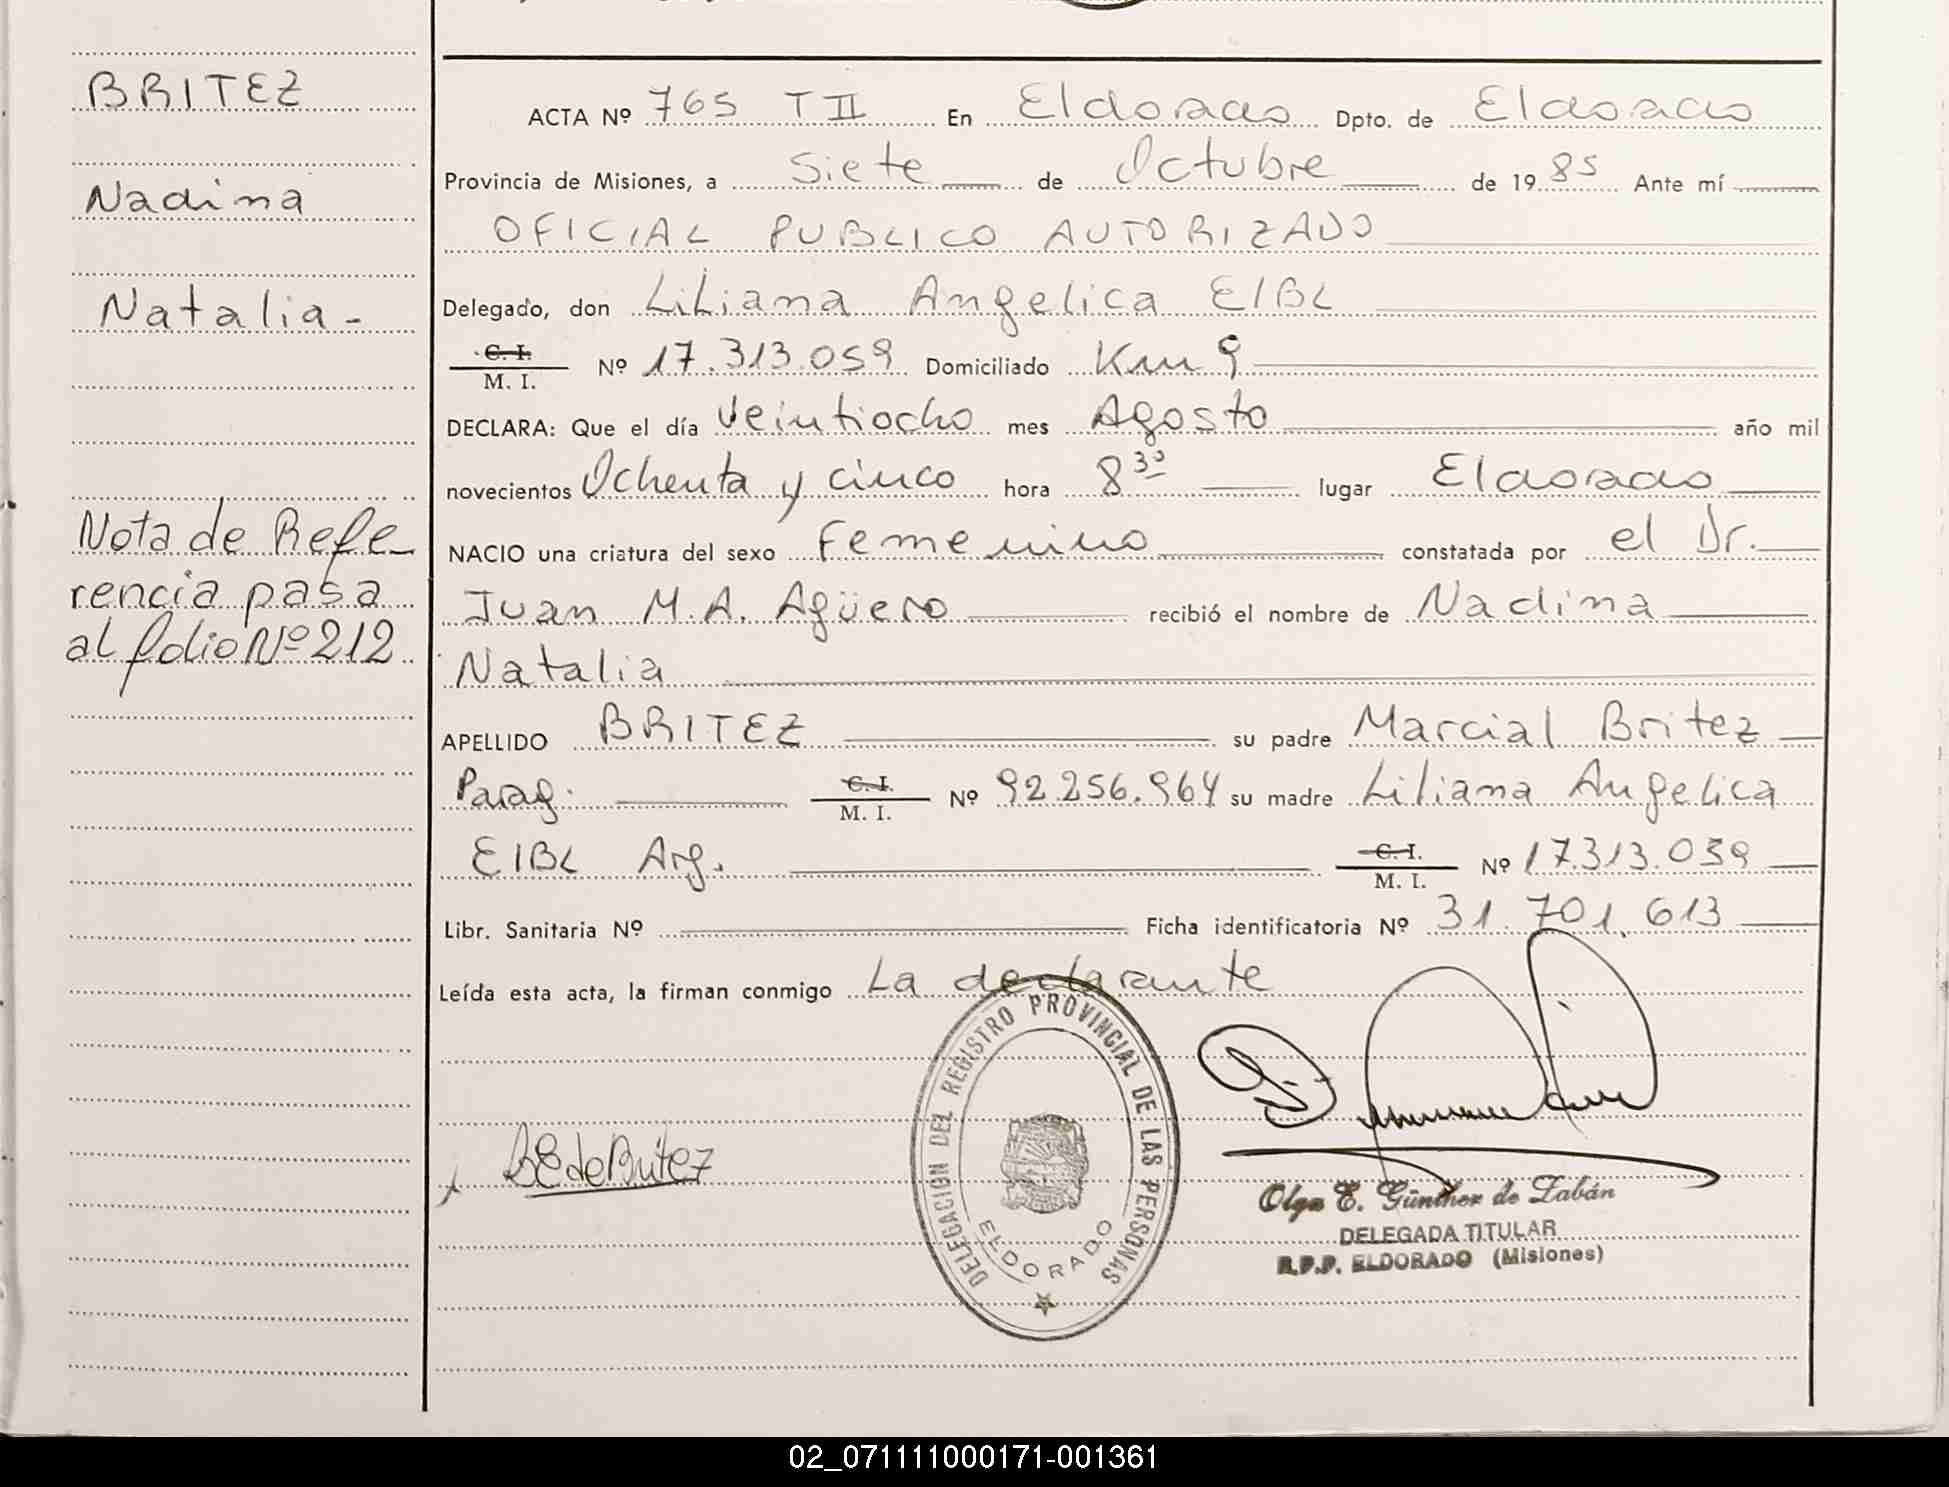 BRITEZ
Nadina
Natalia-
Nota de Refe-
rencia pasa
al folio Nº 212
ACTA Nº 765 T II En Eldorado Dpto. de Eldorado
Provincia de Misiones, a Siete de Octubre de 1985 Ante mí
OFICIAL PUBLICO AUTORIZADO
Delegado, don Liliana Angelica EIBL
C. I.
M. I. Nº 17.313.059 Domiciliado Km 9
DECLARA: Que el día Veintiocho mes Agosto año mil
novecientos Ochenta y cinco hora 8 30 lugar Eldorado
NACIO una criatura del sexo Femenino constatada por el Dr.
Juan M.A. Agüero recibió el nombre de Nadina
Natalia
APELLIDO BRITEZ su padre Marcial Britez
Parag. C. I.
M. I. Nº 92.256.964 su madre Liliana Angelica
EIBL Arg. C. I.
M. I. Nº 17.313.059
Libr. Sanitaria Nº Ficha identificatoria Nº 31.701.613
Leída esta acta, la firman conmigo La declarante
DELEGACION DEL REGISTRO PROVINCIAL DE LAS PERSONAS
ELDORADO
de Britez
Olga E. Günther de Zabán
DELEGADA TITULAR
R.P.P. ELDORADO (Misiones)
02_071111000171-001361